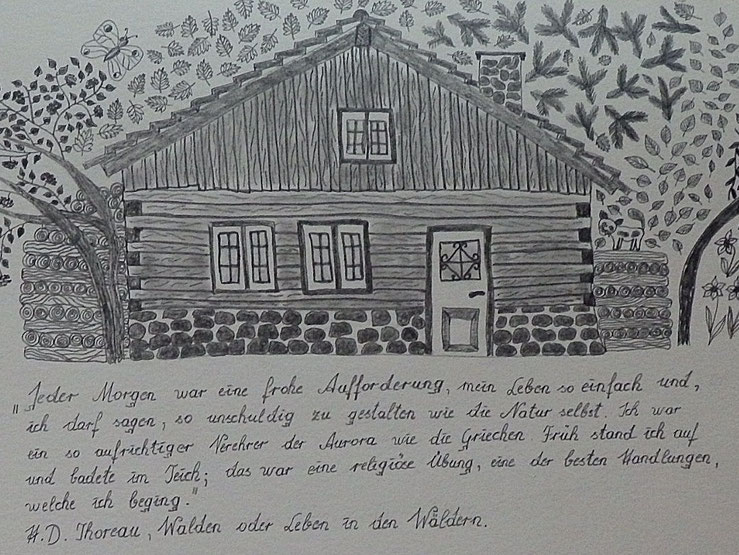 "Jeder Morgen war eine frohe Aufforderung, mein Leben so einfach und,
ich darf sagen, so unschuldig zu gestalten wie die Natur selbst. Ich war
ein so aufrichtiger Verehrer der Aurora wie die Griechen. Früh stand ich auf
und badete im Teich; das war eine religiöse Übung, eine der besten Handlungen,
welche ich beging."
H.D. Thoreau, Walden oder Leben in den Wäldern.